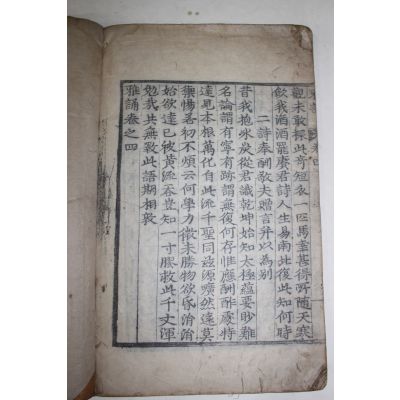 觀未敢探此奇短衣一匹馬幸甚得所隨天寒
飲我酒酒罷賡君詩人生易南北復此知何時
二詩奉酬敬夫贈言幷以為別
昔我抱氷炭從君識乾坤始知太極蘊要眇難
名論謂有寧有跡謂無復何存惟應酬酢處特
達見本根萬化自此流千聖同玆源曠然遠莫
禦惕若初不煩云何學力微未勝物欲昏涓涓
始欲達已被黃流呑豈知一寸膠救此千丈渾
勉哉共無斁此語期相敦
雅誦卷之四